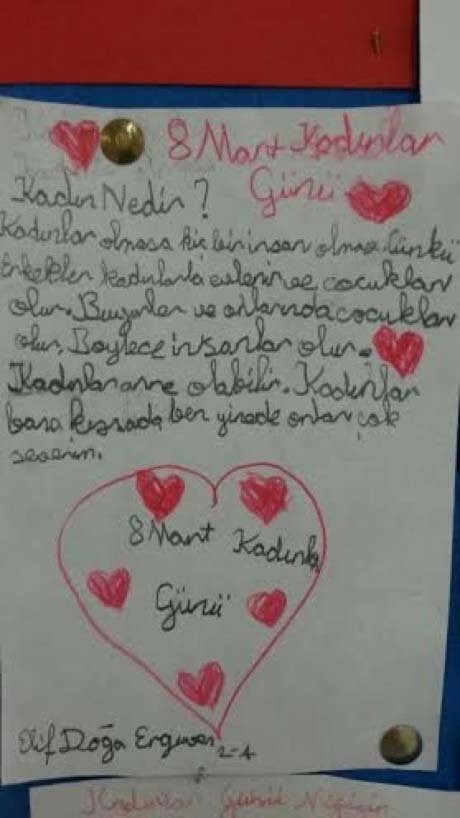 8 Mart Kadınlar
Günü
Kadın Nedir?
Kadınlar olmasa hiç bir insan olmaz. Çünkü
Erkekler kadınlarla evlenir ve cocuklar
olur. Buyurler ve onlarında cocukları
olur. Boylece insanlar olur.
Kadınlar anne olabilir. Kadınlar
bana kızsada ben yinede onları çok
severim.
8 Mart Kadınlar
Günü
Elif Doğa
2-A
Kadınlar Günü